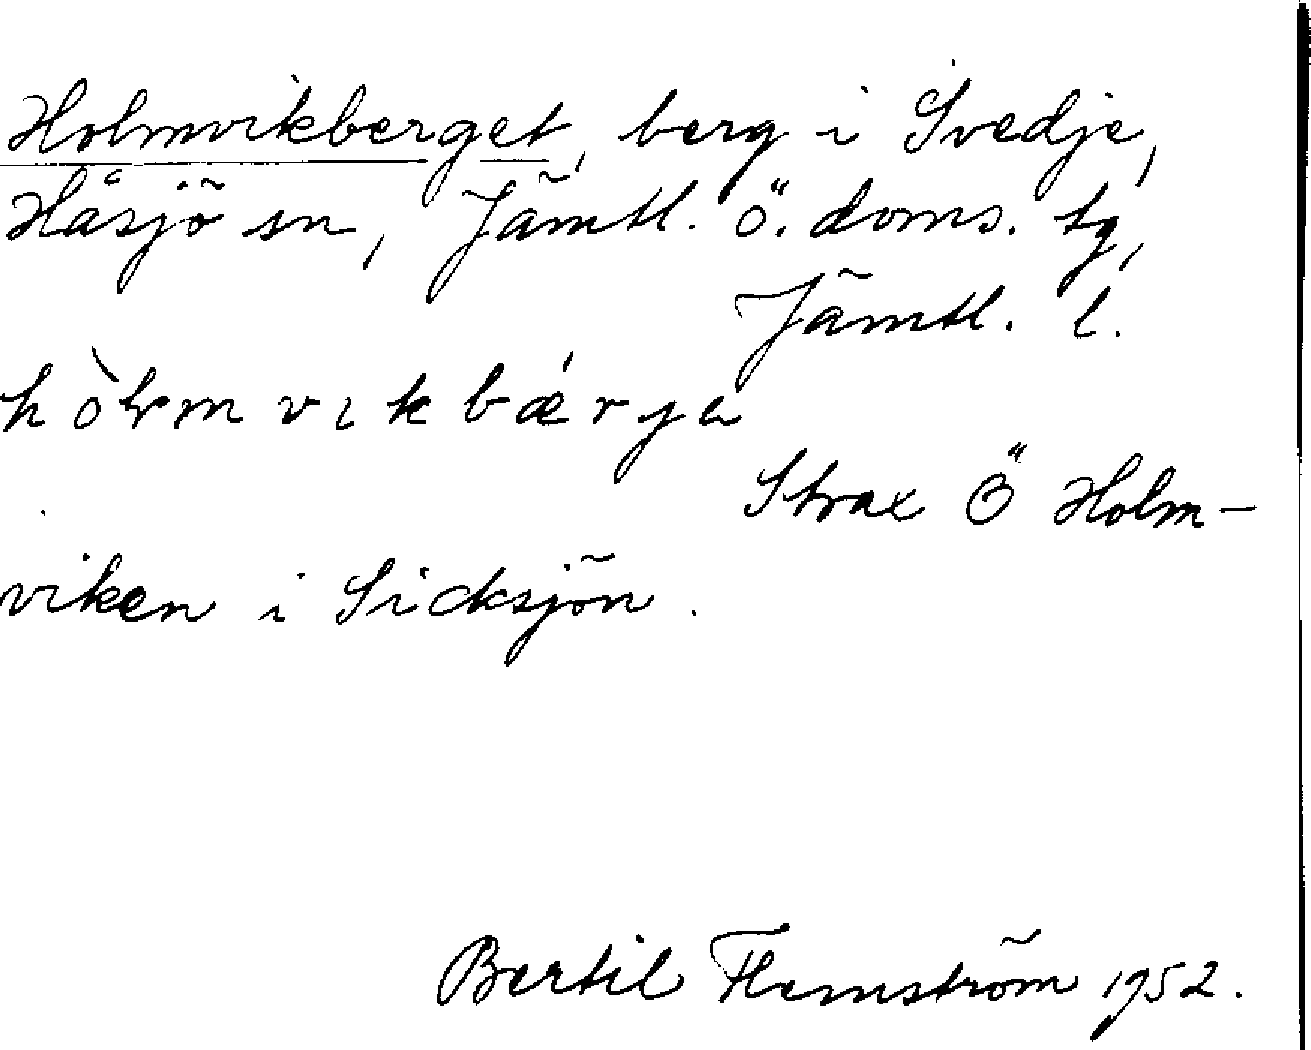 Holmvikberget, berg i Svedje,
Håsjö sn, Jämtl. ö. doms. tg,
Jämtl. l.
hòlmvikbǽrja
Strax Ö Holm-
viken i Sicksjön.
Bertil Flemström 1952.